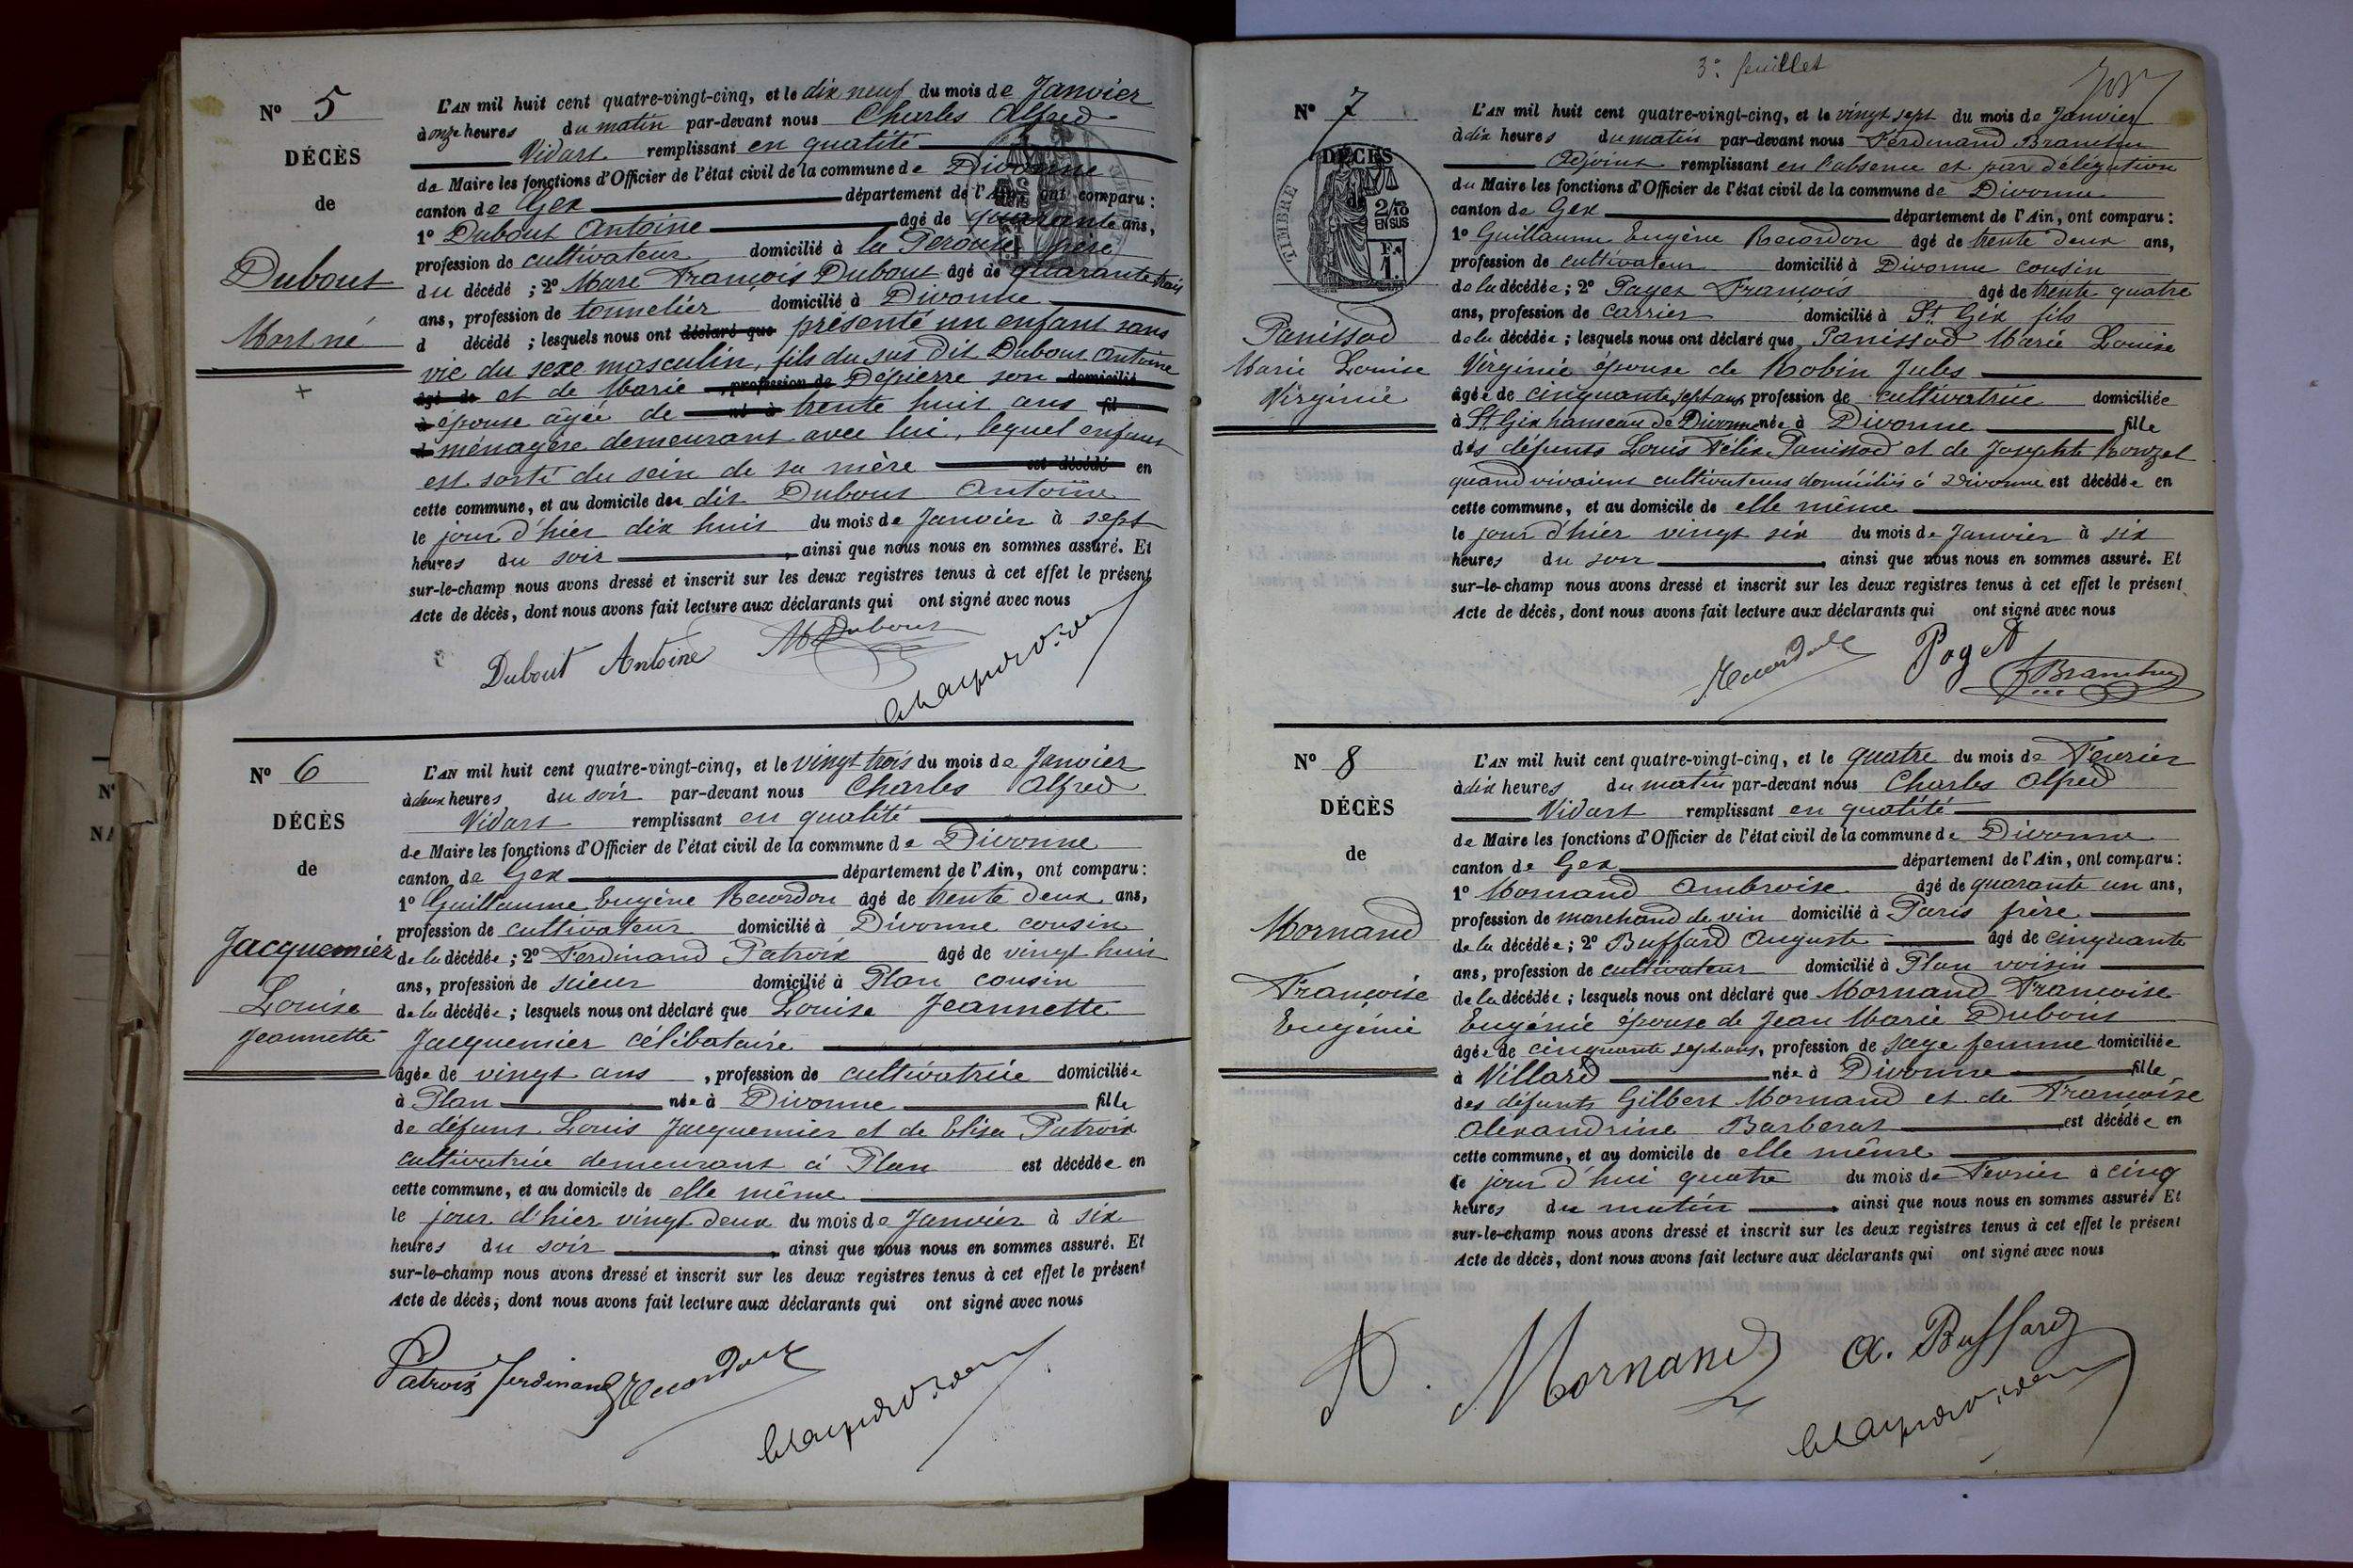 N° 5
DÉCÈS
de
Dubout
Mort né
L'AN mil huit cent quatre-vingt-cinq, et le dix neuf du mois de Janvier
à onze heures du matin par-devant nous Charles Alfred
Vidart remplissant en qualité
de Maire les fonctions d'Officier de l'état civil de la commune de Divonne
canton de Gex département de l'Ain, ont comparu :
1° Dubout Antoine âgé de quarante ans,
profession de cultivateur domicilié à la Perouse père
du décédé ; 2° Marc François Dubout âgé de quarante trois
ans, profession de tonnelier domicilié à Divonne
d décédé ; lesquels nous ont déclaré que présenté un enfant sans
vie du sexe masculin, fils du sus dit Dubout Antoine
âgé de et de Marie , profession de Dépierre son domicilié
à épouse âgée de né à trente huit ans fil
d ménagère demeurant avec lui, lequel enfant
est sorti du sein de sa mère est décédé en
cette commune, et au domicile du dit Dubout Antoine
le jour d'hier dix huit du mois de Janvier à sept
heures du soir , ainsi que nous nous en sommes assuré. Et
sur-le-champ nous avons dressé et inscrit sur les deux registres tenus à cet effet le présent
Acte de décès, dont nous avons fait lecture aux déclarants qui ont signé avec nous
Dubout Antoine M Dubout
N° 6
DÉCÈS
de
Jacquemier
Louise
Jeannette
L'AN mil huit cent quatre-vingt-cinq, et le vingt trois du mois de Janvier
à deux heures du soir par-devant nous Charles Alfred
Vidart remplissant en qualité
de Maire les fonctions d'Officier de l'état civil de la commune de Divonne
canton de Gex département de l'Ain, ont comparu :
1° Guillaume Eugène Recordon âgé de trente deux ans,
profession de cultivateur domicilié à Divonne cousin
de la décédée ; 2° Ferdinand Patroix âgé de vingt huit
ans, profession de scieur domicilié à Plan cousin
de la décédée ; lesquels nous ont déclaré que Louise Jeannette
Jacquemier célibataire
âgée de vingt ans , profession de cultivatrice domiciliée
à Plan née à Divonne fille
de défunt Louis Jacquemier et de Elisa Patroix
cultivatrice demeurant à Plan est décédée en
cette commune, et au domicile de elle même
le jour d'hier vingt deux du mois de Janvier à six
heures du soir , ainsi que nous nous en sommes assuré. Et
sur-le-champ nous avons dressé et inscrit sur les deux registres tenus à cet effet le présent
Acte de décès, dont nous avons fait lecture aux déclarants qui ont signé avec nous
Patroix Ferdinand
3e feuillet
N° 7
DÉCÈS
TIMBRE
2/10
EN SUS
Panissod
Marie Louise
Virginie
L'AN mil huit cent quatre-vingt-cinq, et le vingt sept du mois de Janvier
à dix heures du matin par-devant nous Ferdinand
Adjoint remplissant en l'absence et par délégation
du Maire les fonctions d'Officier de l'état civil de la commune de Divonne
canton de Gex département de l'Ain, ont comparu :
1° Guillaume Eugène Recordon âgé de trente deux ans,
profession de cultivateur domicilié à Divonne cousin
de la décédée ; 2° Paget François âgé de trente quatre
ans, profession de carrier domicilié à St Gix fils
de la décédée ; lesquels nous ont déclaré que Panissod Marie Louise
Virginie épouse de Robin Jules
âgée de cinquante sept ans profession de cultivatrice domiciliée
à St Gix hameau de Divonne née à Divonne fille
des défunts Louis Félix Panissod et de Josephte
quand vivaient cultivateurs domiciliés à Divonne est décédée en
cette commune, et au domicile de elle même
le jour d'hier vingt six du mois de Janvier à six
heures du soir , ainsi que nous nous en sommes assuré. Et
sur-le-champ nous avons dressé et inscrit sur les deux registres tenus à cet effet le présent
Acte de décès, dont nous avons fait lecture aux déclarants qui ont signé avec nous
Paget
N° 8
DÉCÈS
de
Mornand
Françoise
Eugénie
L'AN mil huit cent quatre-vingt-cinq, et le quatre du mois de Fevrier
à dix heures du matin par-devant nous Charles Alfred
Vidart remplissant en qualité
de Maire les fonctions d'Officier de l'état civil de la commune de Divonne
canton de Gex département de l'Ain, ont comparu :
1° Mornand Ambroise âgé de quarante un ans,
profession de marchand de vin domicilié à Paris frère
de la décédée ; 2° Buffard Auguste âgé de cinquante
ans, profession de cultivateur domicilié à Plan voisin
de la décédée ; lesquels nous ont déclaré que Mornand Francoise
Eugénie épouse de Jean Marie Dubois
âgée de cinquante sept ans, profession de sage femme domiciliée
à Villard née à Divonne fille
des défunts Gilbert Mornand et de Francoise
Alexandrine Barberat est décédée en
cette commune, et au domicile de elle même
le jour d'hui quatre du mois de Fevrier à cinq
heures du matin , ainsi que nous nous en sommes assuré. Et
sur-le-champ nous avons dressé et inscrit sur les deux registres tenus à cet effet le présent
Acte de décès, dont nous avons fait lecture aux déclarants qui ont signé avec nous
A. Mornand A. Buffard